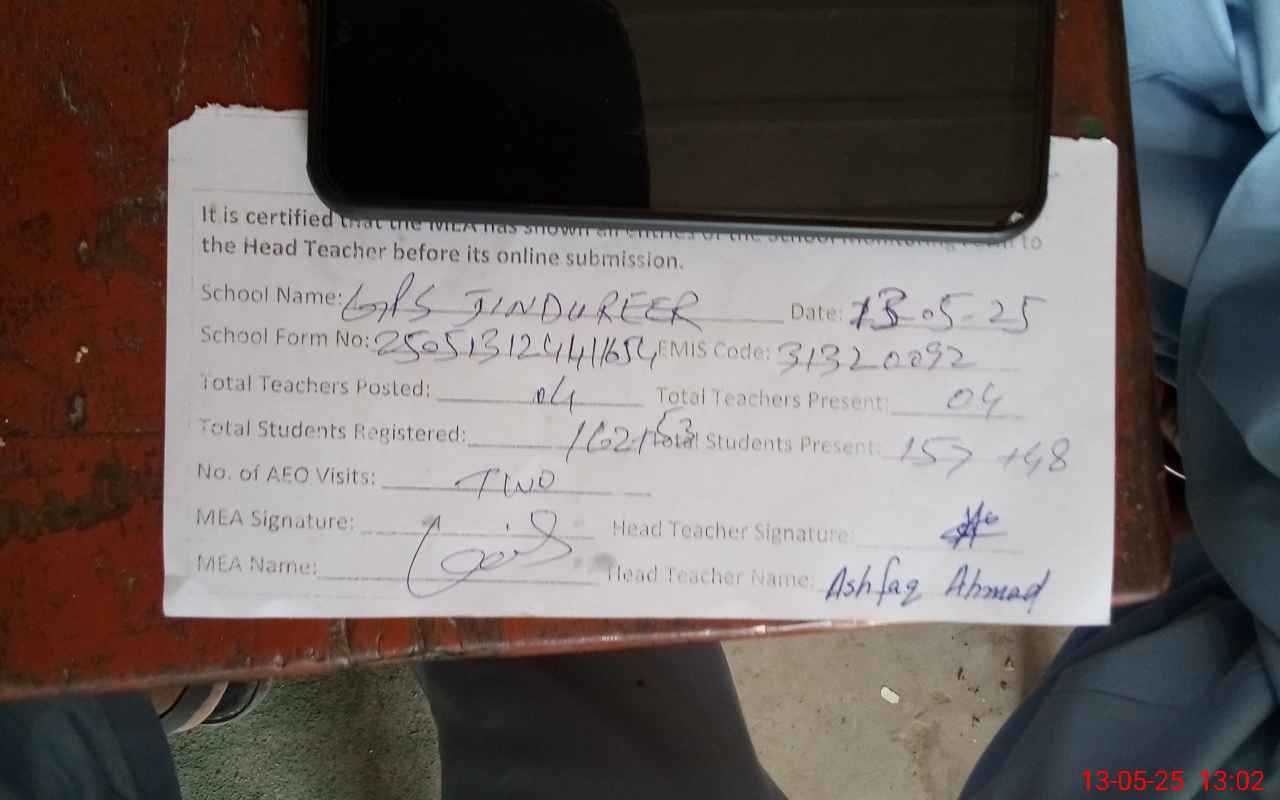 It is certified that the MEA has shown all entries of the School Monitoring Form to
the Head Teacher before its online submission.
School Name: GPS JINDUREER Date: 13-05-25
School Form No: EMIS Code: 31320092
Total Teachers Posted: 04 Total Teachers Present: 04
Total Students Registered: 162+53 Total Students Present: 157+48
No. of AEO Visits: TWO
MEA Signature: Head Teacher Signature:
MEA Name: Head Teacher Name: Ashfaq Ahmad
13-05-25 13:02